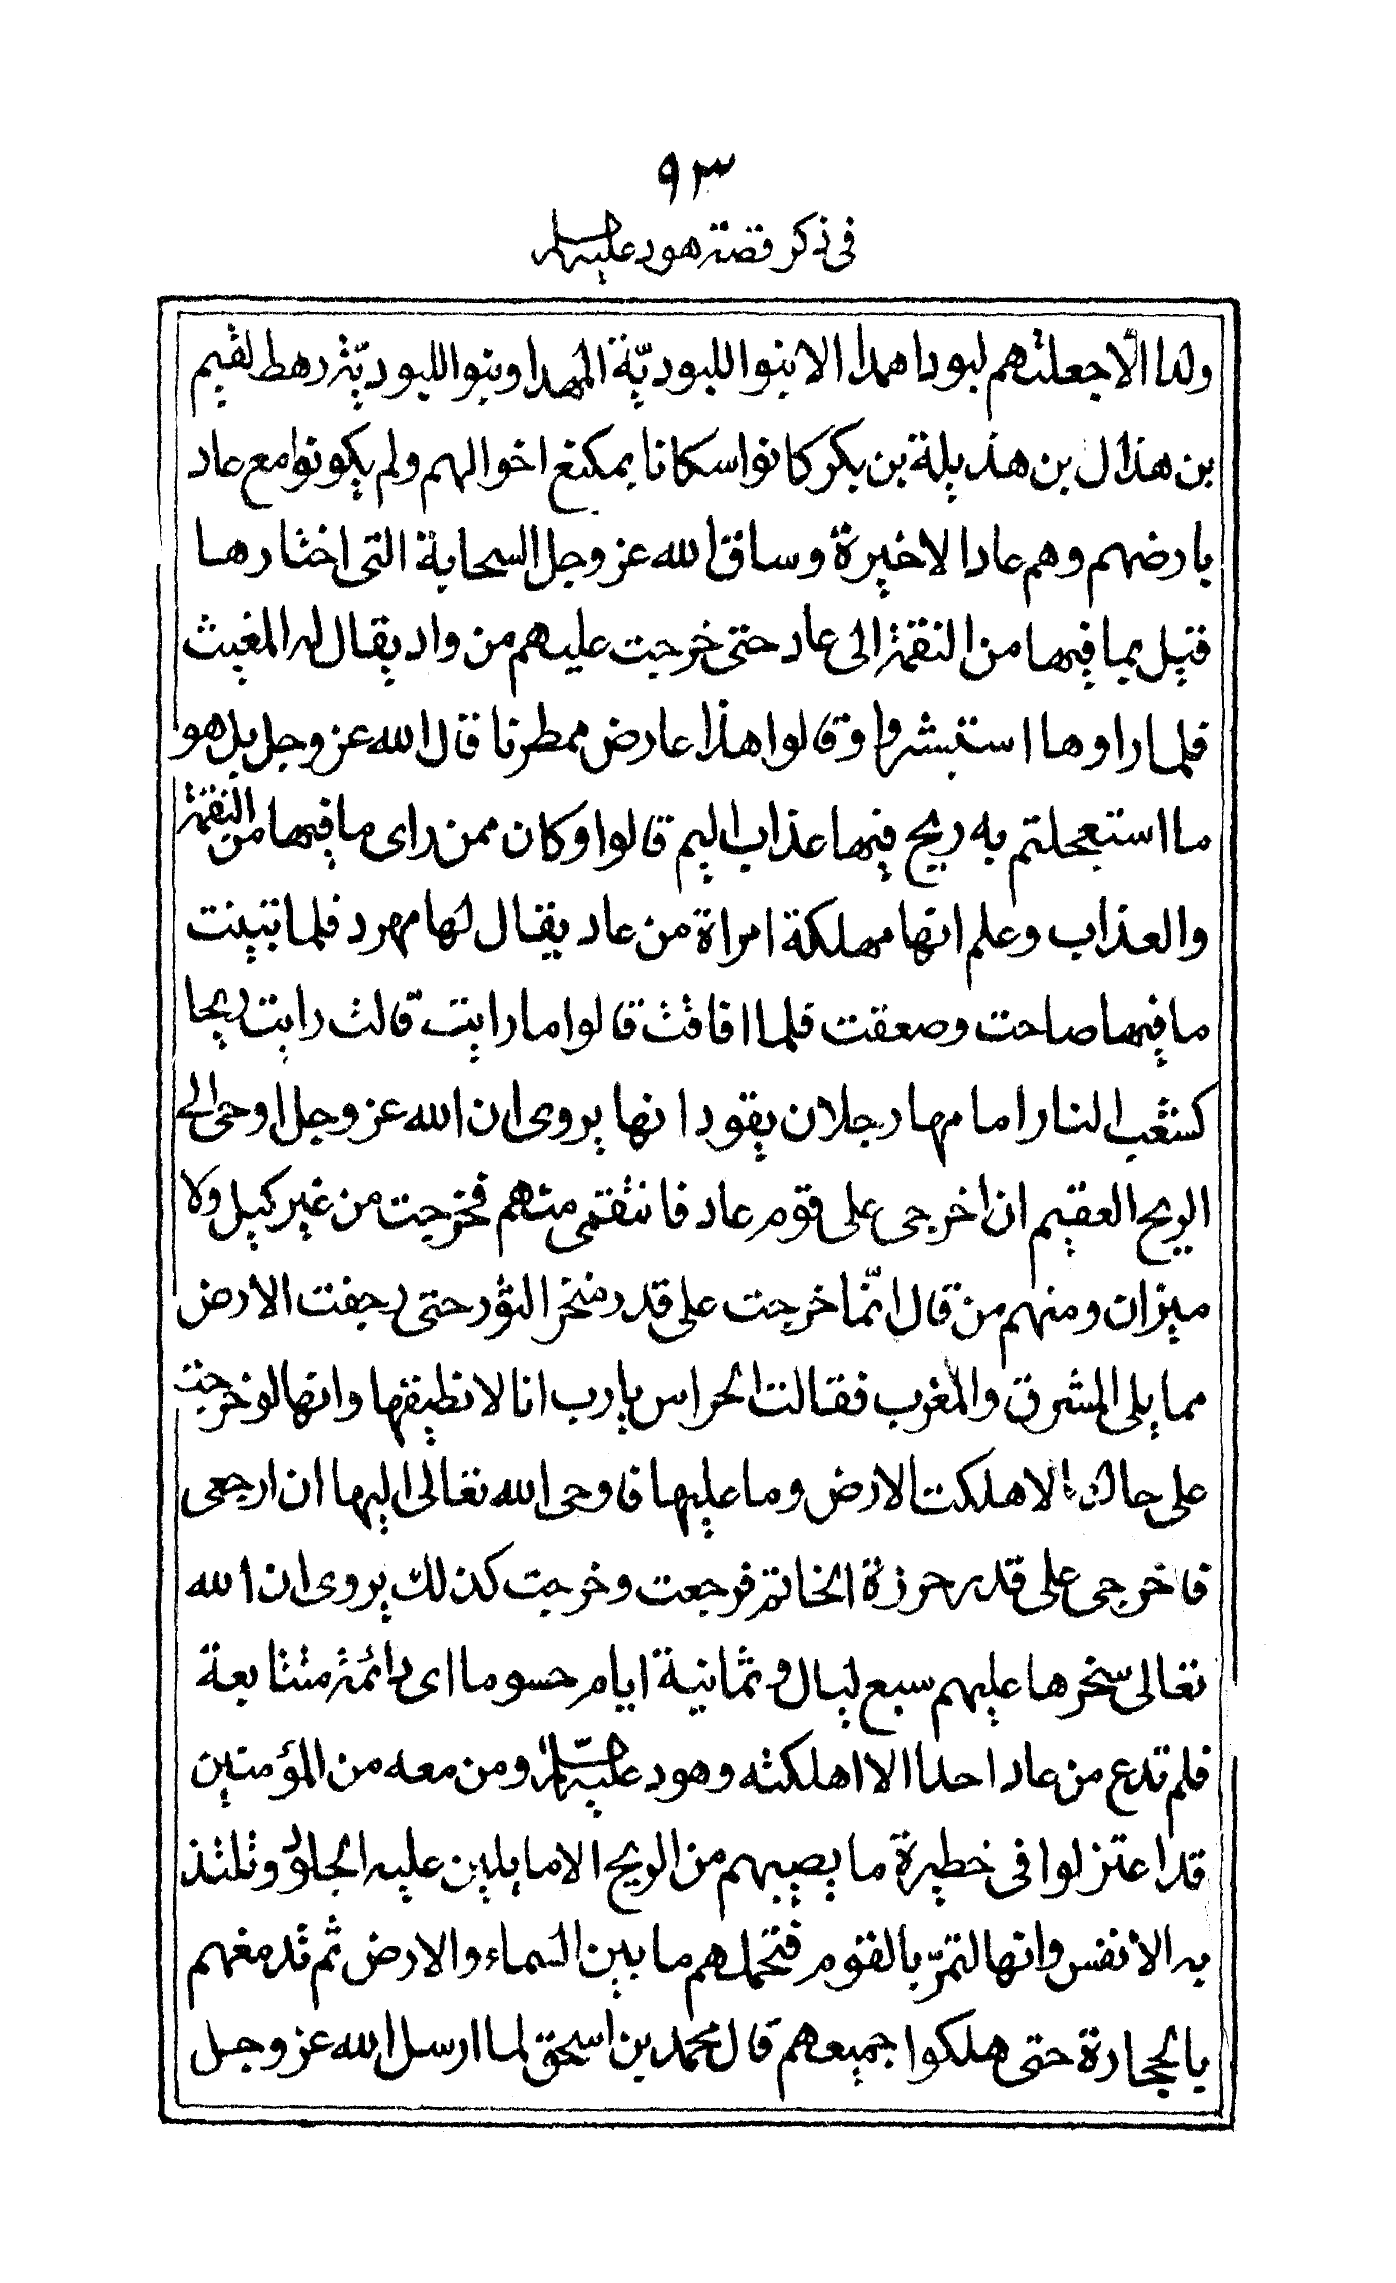 ٩٣
فى ذكر قصة هود عليه السلام
ولدا الّا جعلتهم لبودا همدا الا بنوا اللبوديّة المهدا وبنوا اللبوديّة رهط لقيم
بن هذال بن هذيلة بن بكر كانوا سكانا بمكة مع اخوالهم ولم يكونوا مع عاد
بارضهم وهم عادا الاخيرة وساق الله عز وجل السحابة التى اختارها
قيل بما فيها من النقمة الى عاد حتى خرجت عليهم من واد يقال له المغيث
فلما راوها استبشروا وقالوا هذا عارض ممطرنا قال الله عز وجل بل هو
ما استعجلتم به ريح فيها عذاب اليم قالوا وكان ممن راى ما فيها من النقمة
والعذاب وعلم انها مهلكة امراة من عاد يقال لها مهرد فلما تبينت
ما فيها صاحت وصعقت فلما افاقت قالوا ما رايت قالت رايت ريحا
كشهب النار امامها رجلان يقودانها يروى ان الله عز وجل اوحى الى
الريح العقيم ان اخرجى على قوم عاد فانتقمى منهم فخرجت من غير كيل ولا
ميزان ومنهم من قال انّما خرجت على قدر منخر الثور حتى رجفت الارض
مما يلى المشرق والمغرب فقالت الحراس يا رب انا لا نطيقها وانها لو خرجت
على حالها لاهلكت الارض وما عليها فاوحى الله تعالى اليها ان ارجعى
فاخرجى على قدر حرزة الخاتم فرجعت وخرجت كذلك يروى ان الله
تعالى سخرها عليهم سبع ليال وثمانية ايام حسوما اى دائمة متتابعة
فلم تدع من عاد احدا الا اهلكته وهود عليه السّلام ومن معه من المؤمنين
قد اعتزلوا فى خطيرة ما يصيبهم من الريح الا ما يلين عليه الجلود وتلتذ
به الانفس وانها لتمرّ بالقوم فتحملهم ما بين السماء والارض ثم تدمغهم
بالحجارة حتى هلكوا جميعهم قال محمد بن اسحق لما ارسل الله عز وجل